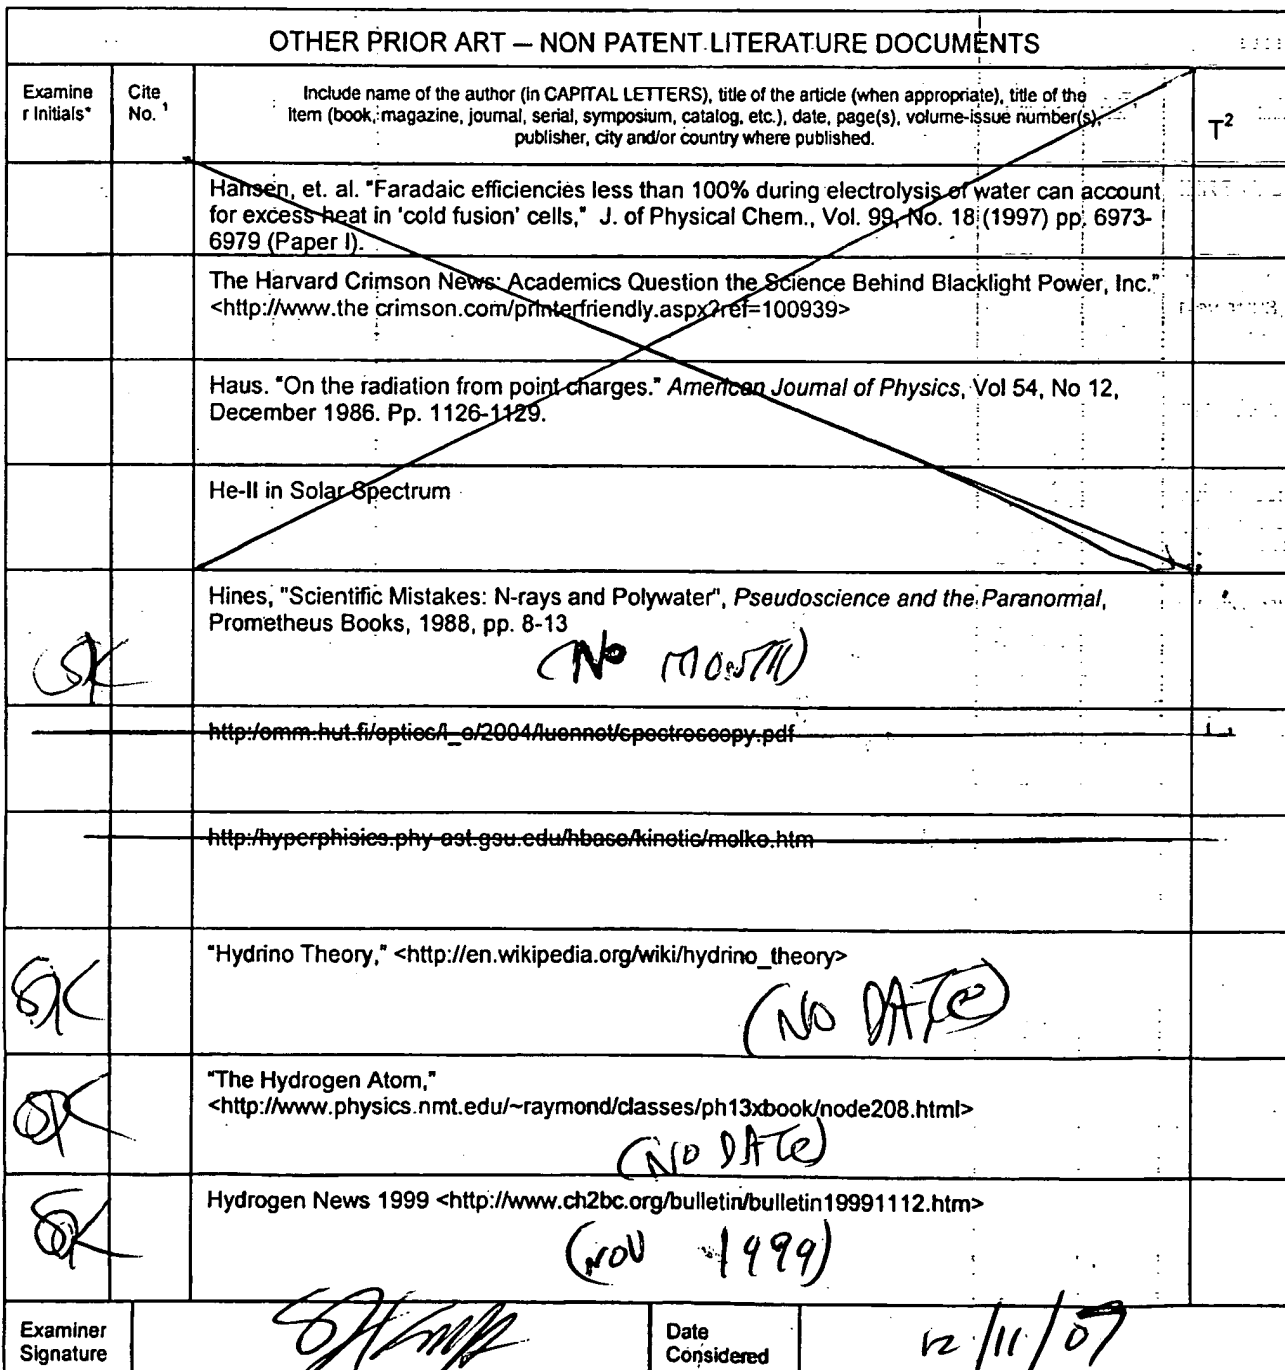 OTHER PRIOR ART — NON PATENT LITERATURE DOCUMENTS
Examine
r Initials*
Cite
No. 1
Include name of the author (in CAPITAL LETTERS), title of the article (when appropriate), title of the
item (book, magazine, journal, serial, symposium, catalog, etc.), date, page(s), volume-issue number(s),
publisher, city and/or country where published.
T2
Hansen, et. al. "Faradaic efficiencies less than 100% during electrolysis of water can account
for excess heat in 'cold fusion' cells," J. of Physical Chem., Vol. 99, No. 18 (1997) pp. 6973-
6979 (Paper I).
The Harvard Crimson News: Academics Question the Science Behind Blacklight Power, Inc."
<http://www.the crimson.com/printerfriendly.aspx?ref=100939>
Haus. "On the radiation from point charges." American Journal of Physics, Vol 54, No 12,
December 1986. Pp. 1126-1129.
He-II in Solar Spectrum
Hines, "Scientific Mistakes: N-rays and Polywater", Pseudoscience and the Paranormal,
Prometheus Books, 1988, pp. 8-13
SK
(No MONTH)
http:/omm.hut.fi/optics/l_o/2004/luennot/spectroscopy.pdf
http:/hyperphisics.phy-ast.gsu.edu/hbase/kinetic/molke.htm
"Hydrino Theory," <http://en.wikipedia.org/wiki/hydrino_theory>
SK
(NO DATe)
"The Hydrogen Atom,"
<http://www.physics.nmt.edu/~raymond/classes/ph13xbook/node208.html>
SK
(NO DATe)
Hydrogen News 1999 <http://www.ch2bc.org/bulletin/bulletin19991112.htm>
SK
(NOV 1999)
Examiner
Signature
Date
Considered
12/11/07